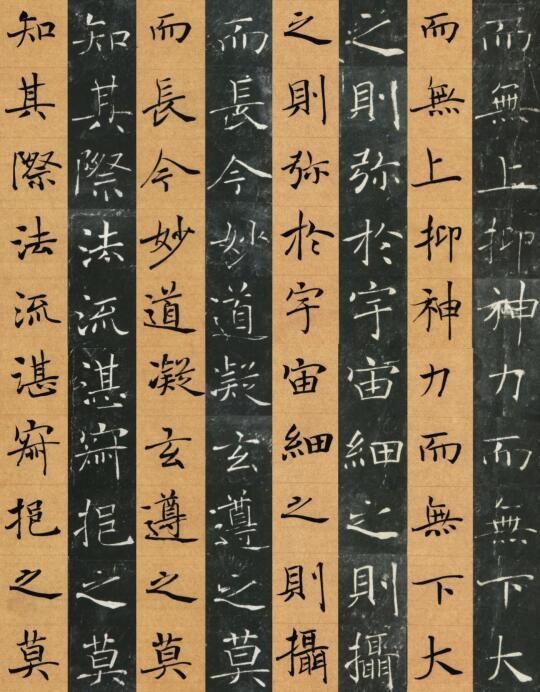 而無上抑神力而無下大
而無上抑神力而無下大
之則弥於宇宙細之則攝
之則弥於宇宙細之則攝
而長今妙道凝玄遵之莫
而長今妙道凝玄遵之莫
知其際法流湛寂挹之莫
知其際法流湛寂挹之莫